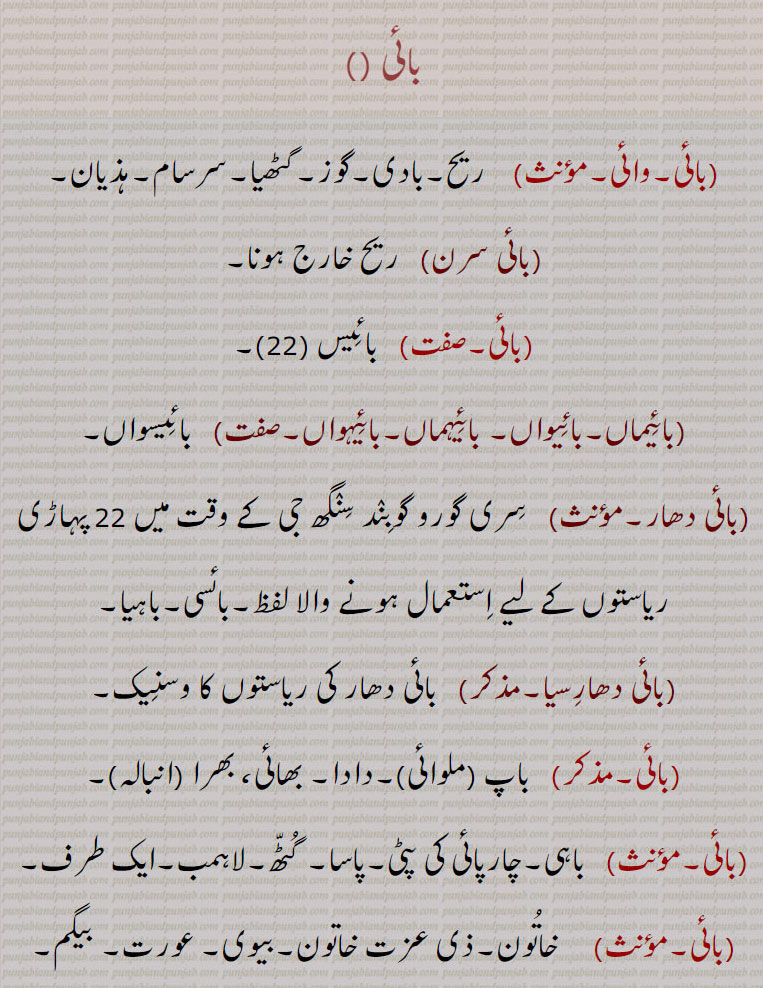 بائی ()
(بائی۔وائی۔مؤنث) ریح۔بادی۔گوز۔گٹھیا۔سرسام۔ہذیان۔
(بائی سرن) ریح خارج ہونا۔
(بائی۔صفت) بائِیس (22)۔
(بائِیماں۔بائِیواں۔بائِیہماں۔بائِیہواں۔صفت) بائِیسواں۔
(بائی دھار۔مؤنث) سِری گورو گوبِنْد سِنْگھ جی کے وقت میں 22 پہاڑی
ریاستوں کے لیے اِستعمال ہونے والا لفظ۔بائسی۔باہیا۔
(بائی دھارِسیا۔مذکر) بائی دھار کی ریاستوں کا وسنِیک۔
(بائی۔مذکر) باپ (ملوائی)۔دادا۔ بھائی، بھرا (انبالہ)۔
(بائی۔مؤنث) باہی۔چارپائی کی پٹی۔پاسا۔ گُٹھّ۔لاہمب۔ایک طرف۔
(بائی۔مؤنث) خاتُون۔ذی عزت خاتون۔بیوی۔ عورت۔ بیگم۔